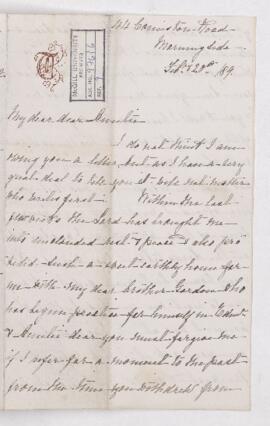 44 Coniston Road
Morningside
Feby 20th /89.
McGILL UNIVERSITY
ARCHIVES
ACC. NO.
REF.
My dear dear Amelia
I do not think I am
owing you a letter, but as I have a very
great deal to tell you it will not matter
who writes first. Within the last
few weeks the Lord has brought me
into unclouded rest & peace & also pro
vided such a sweet earthly home for
me with my dear brother Gordon who
has begun practice for himself in Edinr
& Amelia dear you must forgive me
if I refer for a moment to the past
from the time you withdrew from